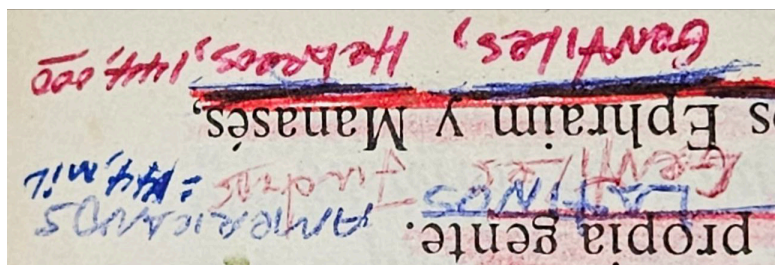 propia gente.
LATINOS AMERICANOS
GENTILES =144,mil
s Ephraim y Manasés,
GENTILES, Hebreos, 144,000